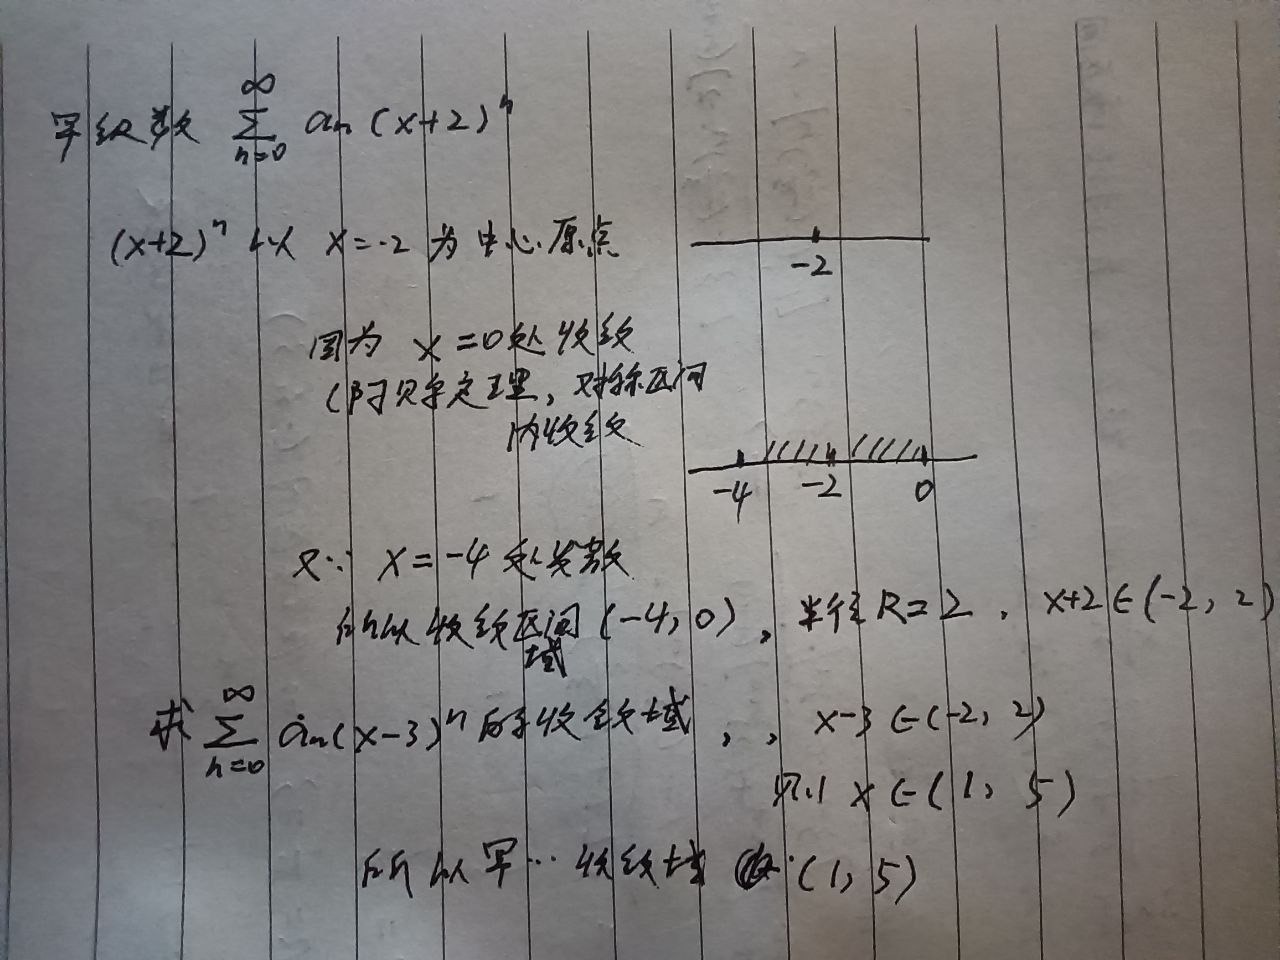 幂级数 ∑_{n=0}^{∞} an (x+2)^n
(x+2)^n 以 x=-2 为中心原点
-2
因为 x=0处收敛
(阿贝尔定理,对称区间
内收敛
-4 -2 0
又∵ x=-4 处发散
所以收敛区间(-4,0), 半径R=2. x+2∈(-2,2)
域
求 ∑_{n=0}^{∞} an(x-3)^n 的收敛域,, x-3∈(-2,2)
则 x∈(1,5)
所以幂…收敛域 (1,5)